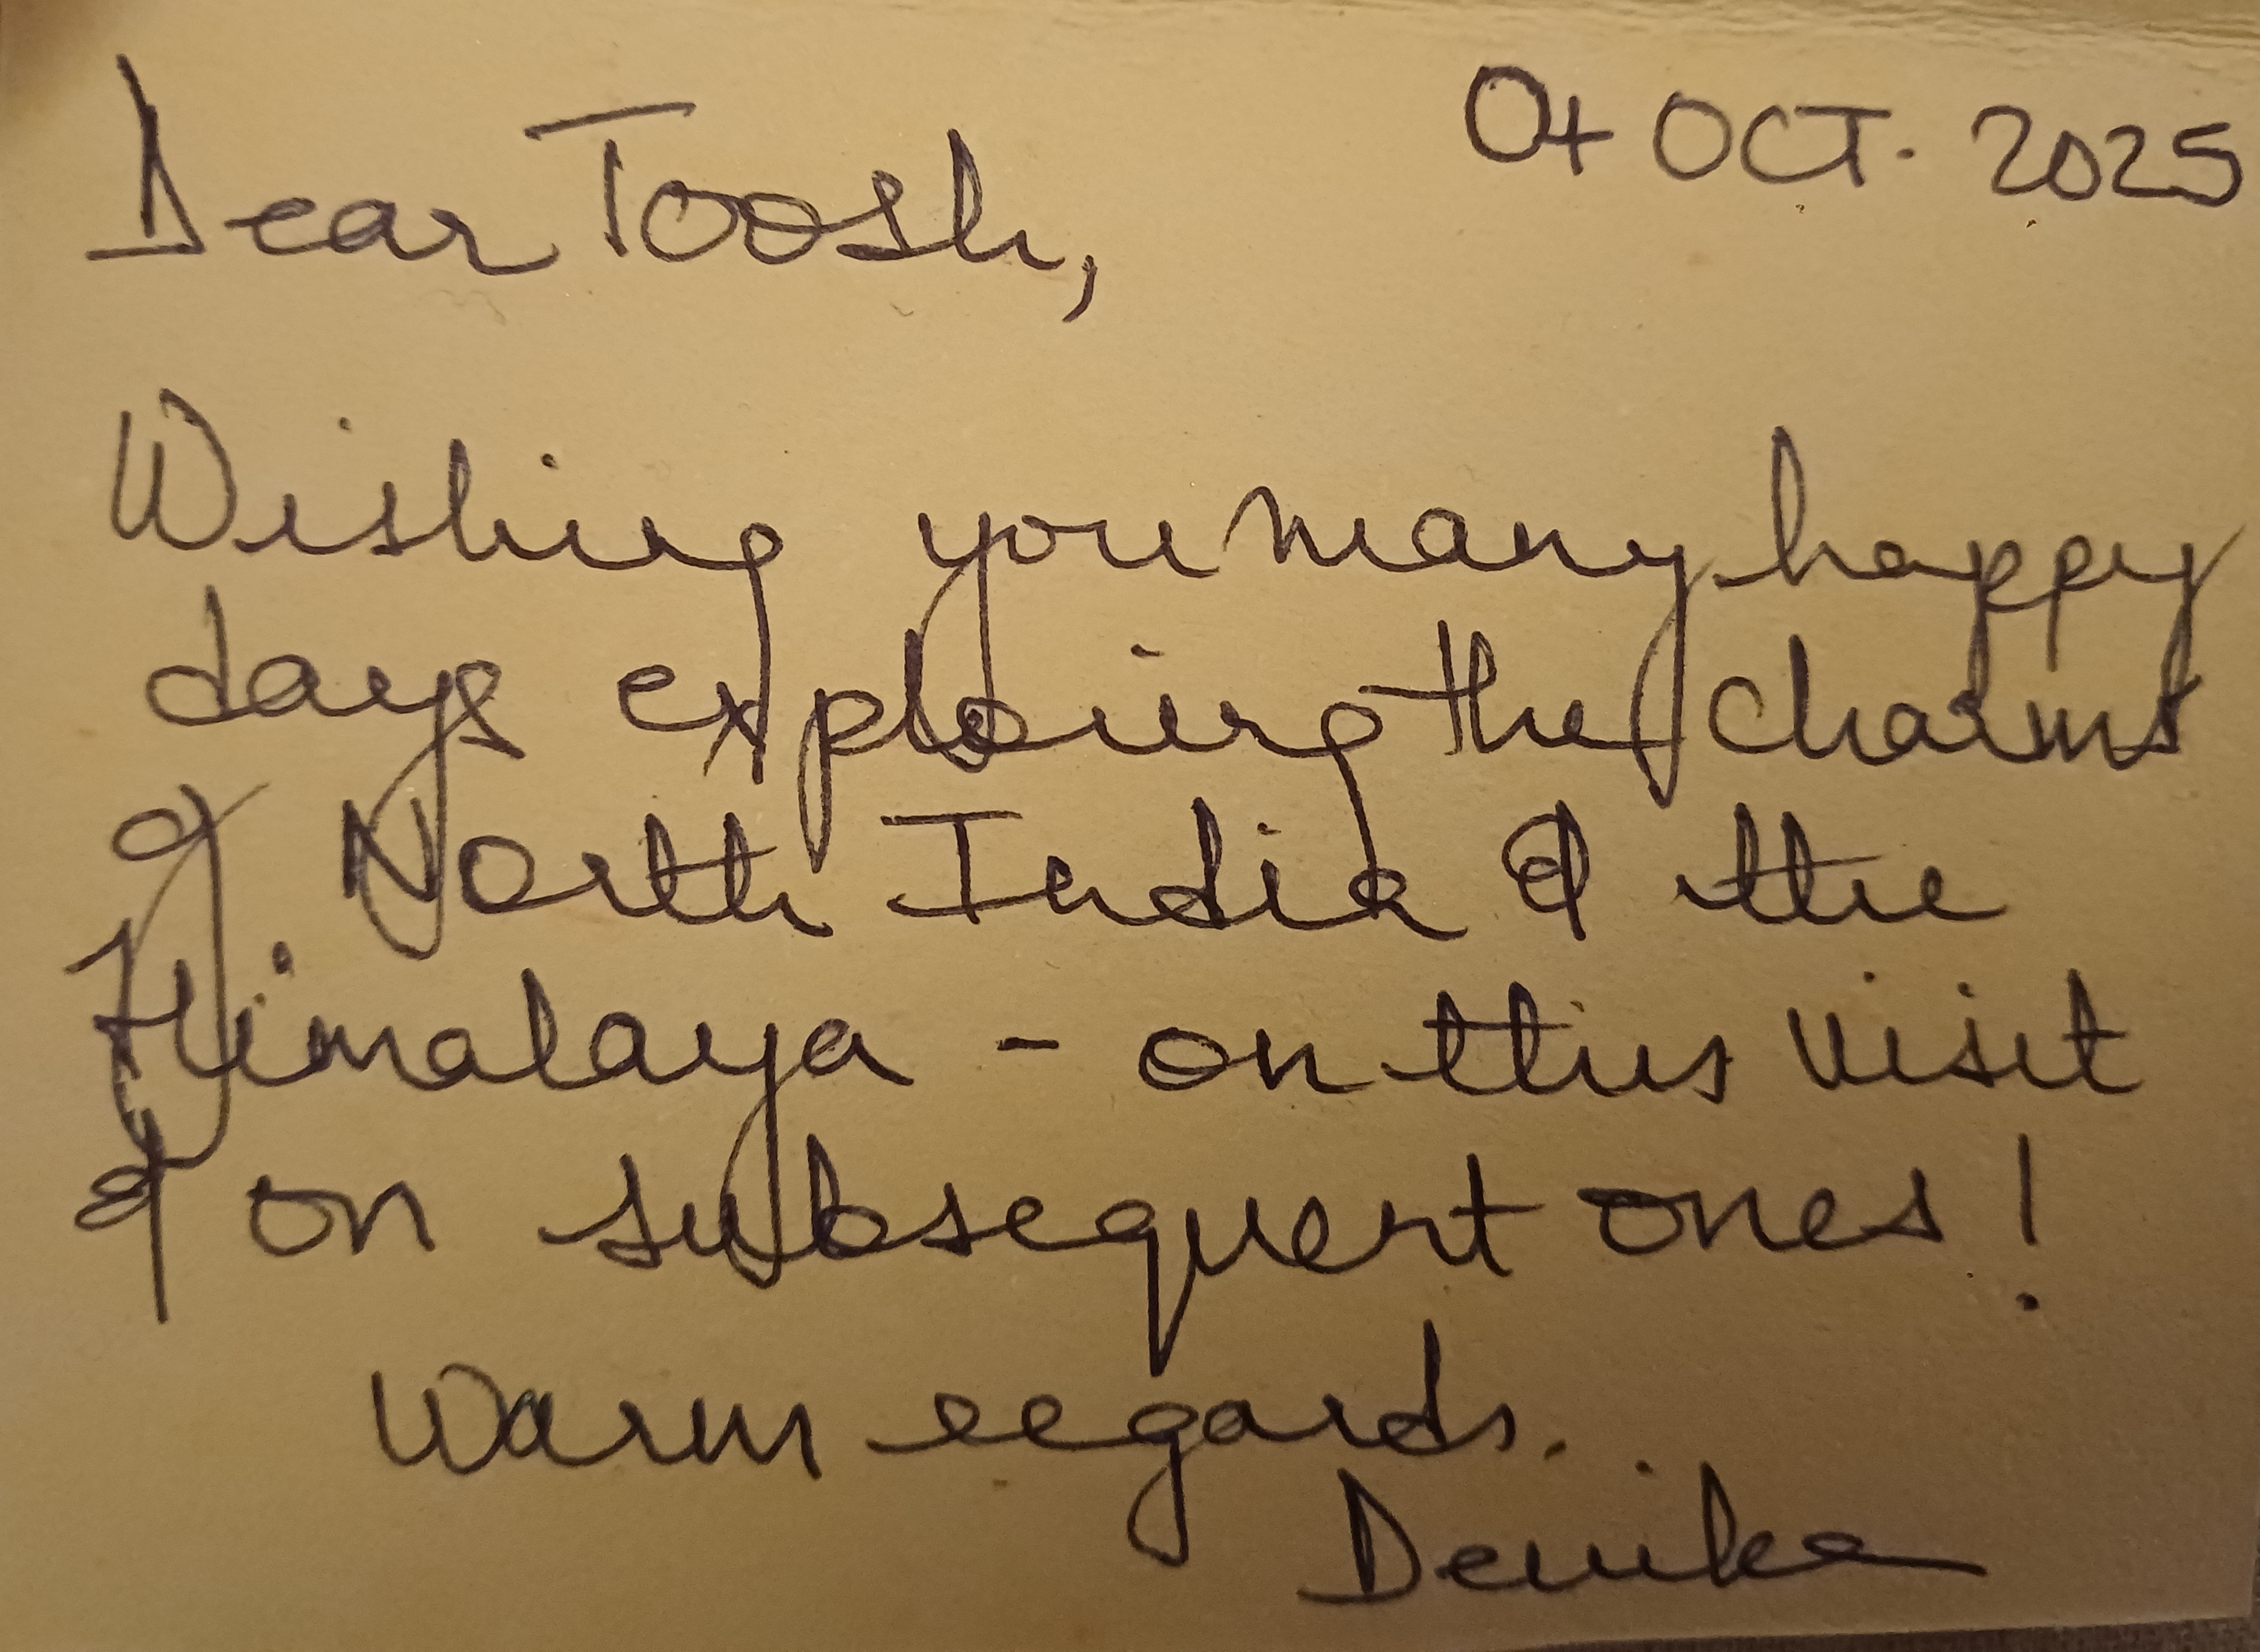 04 OCT. 2025
Dear Toosh,
Wishing you many happy
days exploring the charms
of North India & the
Himalaya - on this visit
& on subsequent ones!
Warm regards.
Devika